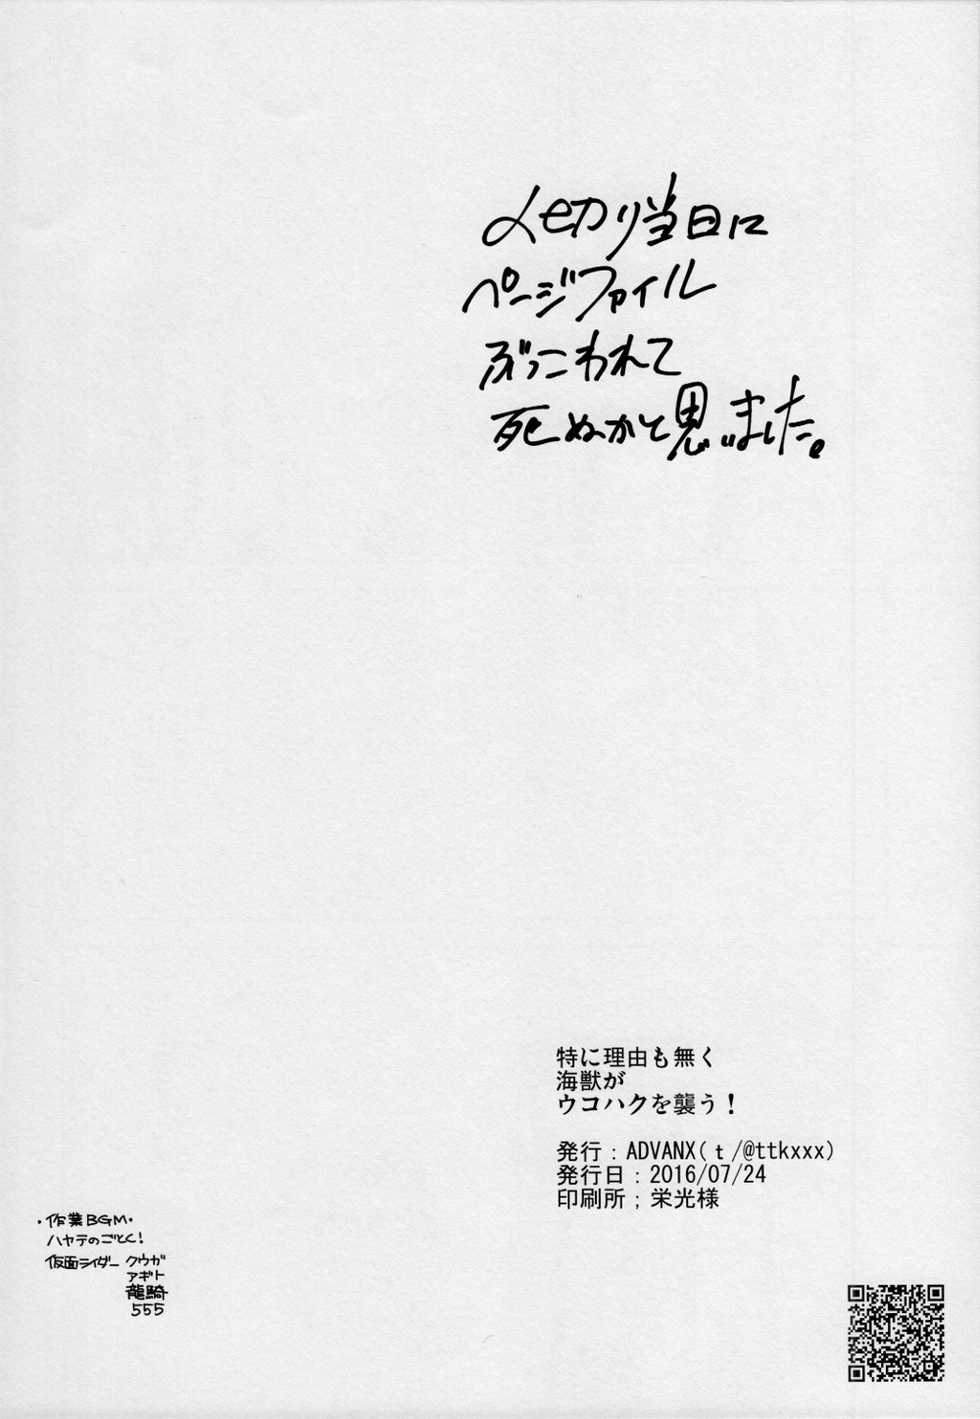 〆切り当日に
ページファイル
ぶっこわれて
死ぬかと思いました。
特に理由も無く
海獣が
ウコハクを襲う！
発行：ADVANX(ｔ/@ttkxxx)
発行日：2016/07/24
印刷所；栄光様
・作業BGM・
ハヤテのごとく！
仮面ライダー クウガ
アギト
龍騎
555